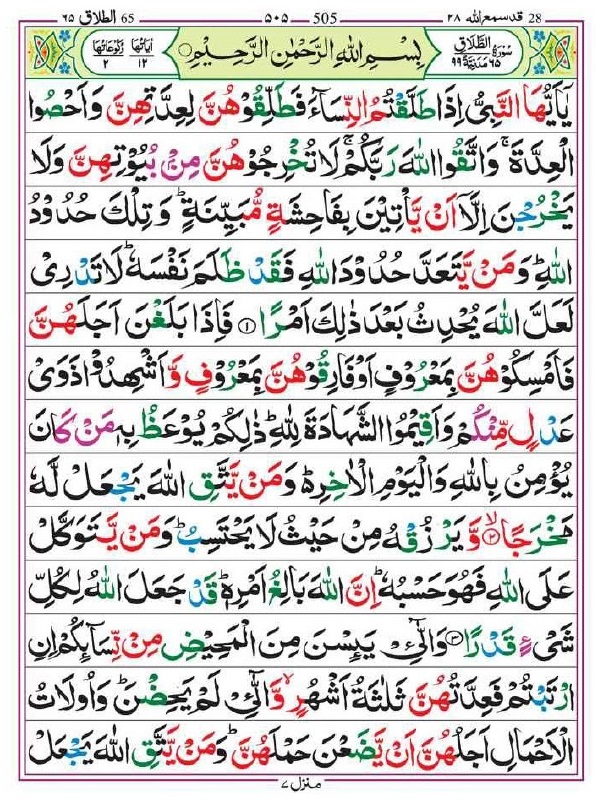 28 قد سمع الله ٢٨ 505 ٥٠٥ 65 الطلاق ٦٥
سُوْرَةُ الطَّلَاقِ ٦٥ مَدَنِيَّةٌ ٩٩ بِسْمِ اللّٰهِ الرَّحْمٰنِ الرَّحِيْمِ اٰيَاتُهَا ١٢ رُكُوْعَاتُهَا ٢
يٰۤاَيُّهَا النَّبِيُّ اِذَا طَلَّقْتُمُ النِّسَآءَ فَطَلِّقُوْهُنَّ لِعِدَّتِهِنَّ وَاَحْصُوا
الْعِدَّةَ ۚ وَاتَّقُوا اللّٰهَ رَبَّكُمْ ۚ لَا تُخْرِجُوْهُنَّ مِنْۢ بُيُوْتِهِنَّ وَلَا
يَخْرُجْنَ اِلَّاۤ اَنْ يَّاْتِيْنَ بِفَاحِشَةٍ مُّبَيِّنَةٍ ؕ وَتِلْكَ حُدُوْدُ
اللّٰهِ ؕ وَمَنْ يَّتَعَدَّ حُدُوْدَ اللّٰهِ فَقَدْ ظَلَمَ نَفْسَهٗ ؕ لَا تَدْرِىْ
لَعَلَّ اللّٰهَ يُحْدِثُ بَعْدَ ذٰلِكَ اَمْرًا ١ فَاِذَا بَلَغْنَ اَجَلَهُنَّ
فَاَمْسِكُوْهُنَّ بِمَعْرُوْفٍ اَوْ فَارِقُوْهُنَّ بِمَعْرُوْفٍ وَّاَشْهِدُوْا ذَوَىْ
عَدْلٍ مِّنْكُمْ وَاَقِيْمُوا الشَّهَادَةَ لِلّٰهِ ؕ ذٰلِكُمْ يُوْعَظُ بِهٖ مَنْ كَانَ
يُؤْمِنُ بِاللّٰهِ وَالْيَوْمِ الْاٰخِرِ ؕ۬ وَمَنْ يَّتَّقِ اللّٰهَ يَجْعَلْ لَّهٗ
مَخْرَجًا ۙ ٢ وَّيَرْزُقْهُ مِنْ حَيْثُ لَا يَحْتَسِبُ ؕ وَمَنْ يَّتَوَكَّلْ
عَلَى اللّٰهِ فَهُوَ حَسْبُهٗ ؕ اِنَّ اللّٰهَ بَالِغُ اَمْرِهٖ ؕ قَدْ جَعَلَ اللّٰهُ لِكُلِّ
شَىْءٍ قَدْرًا ٣ وَالّٰٓـِٔىْ يَىِٕسْنَ مِنَ الْمَحِيْضِ مِنْ نِّسَآىِٕكُمْ اِنِ
ارْتَبْتُمْ فَعِدَّتُهُنَّ ثَلٰثَةُ اَشْهُرٍ ۙ وَّالّٰٓـِٔىْ لَمْ يَحِضْنَ ؕ وَاُولَاتُ
الْاَحْمَالِ اَجَلُهُنَّ اَنْ يَّضَعْنَ حَمْلَهُنَّ ؕ وَمَنْ يَّتَّقِ اللّٰهَ يَجْعَلْ
منزل ٧